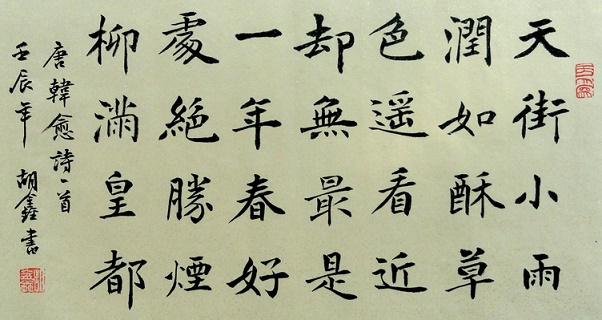 天街小雨
潤如酥草
色遥看近
却無最是
一年春好
處絶勝煙
柳滿皇都
唐韓愈詩一首
壬辰年 胡鑫書